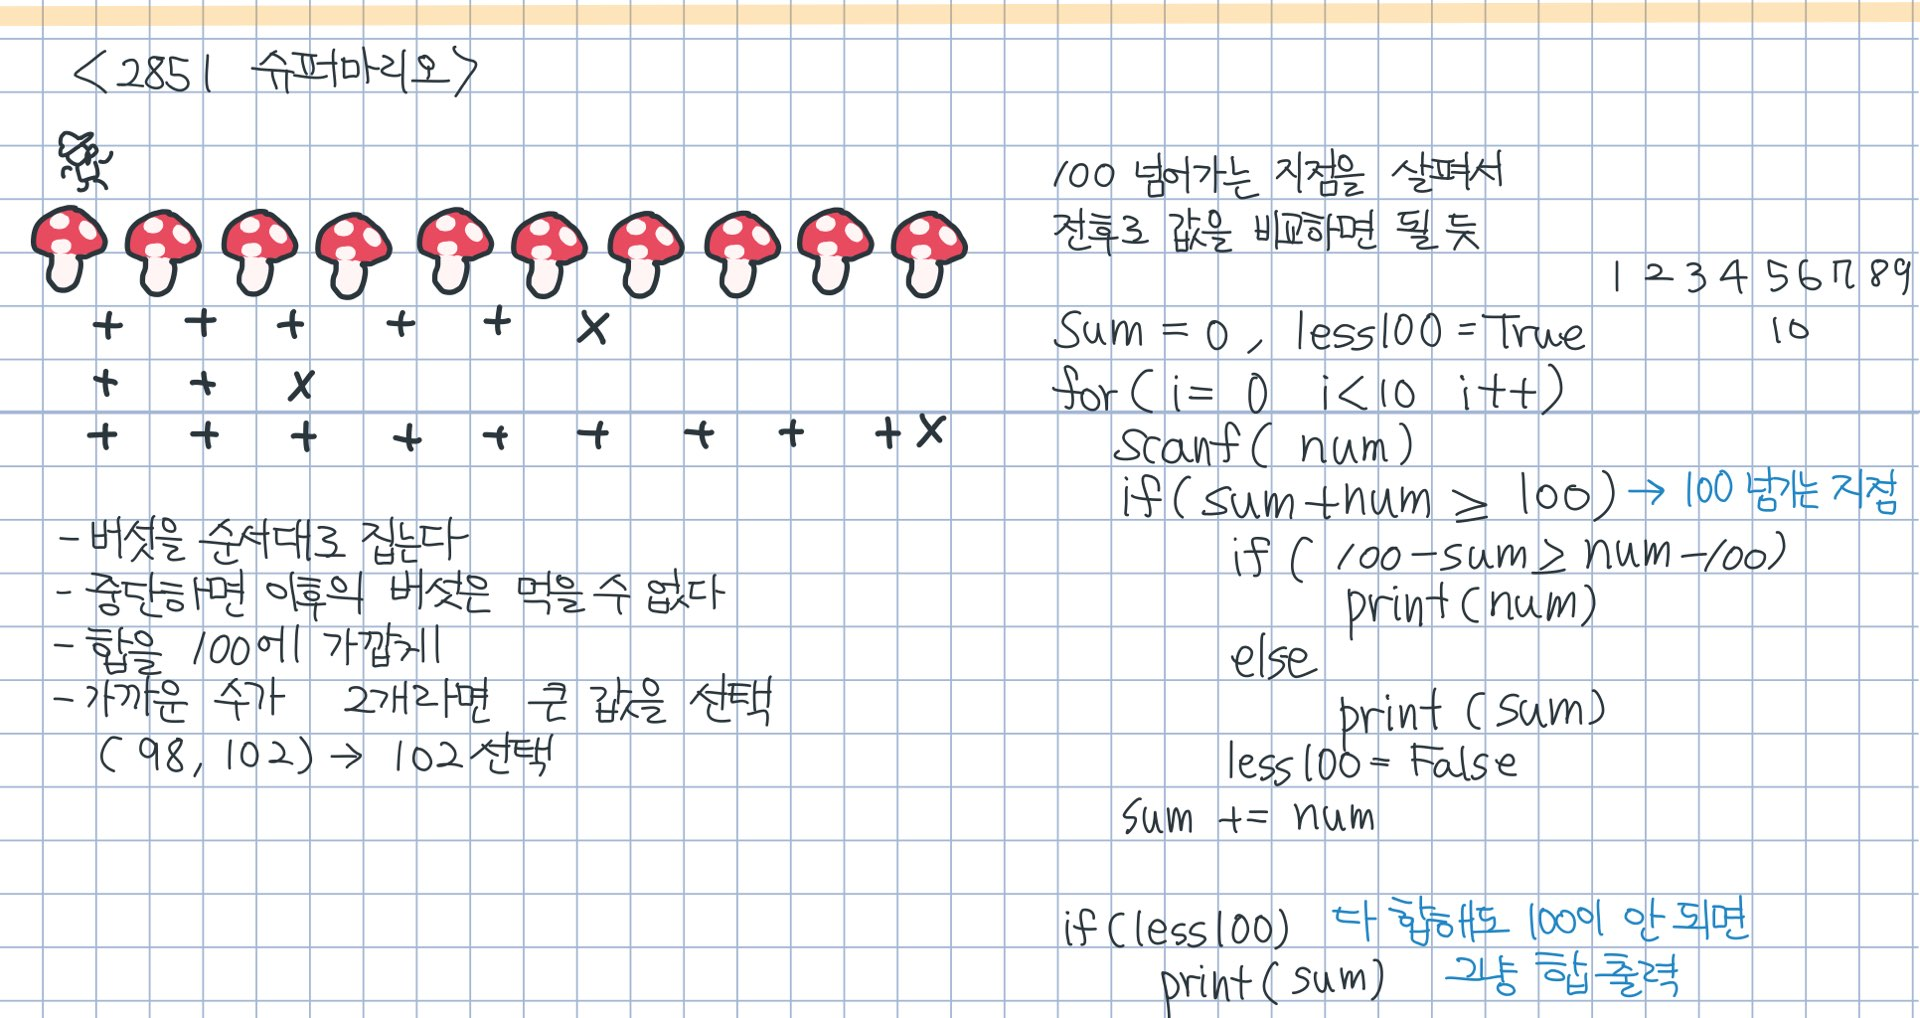 <2851 슈퍼마리오>
+ + + + + x
+ + x
+ + + + + + + + + x
- 버섯을 순서대로 집는다
- 중단하면 이후의 버섯은 먹을 수 없다
- 합을 100에 가깝게
- 가까운 수가 2개라면 큰 값을 선택
(98, 102) → 102 선택
100 넘어가는 지점을 살펴서
전후로 값을 비교하면 될 듯
1 2 3 4 5 6 7 8 9
10
Sum = 0, less100 = True
for ( i = 0 i < 10 i++)
scanf( num )
if ( sum+num ≥ 100) → 100 넘기는 지점
if ( 100-sum ≥ num-100)
print (num)
else
print (sum)
less100 = False
sum += num
if (less100) 다 합해도 100이 안 되면
print ( sum) 그냥 합 출력